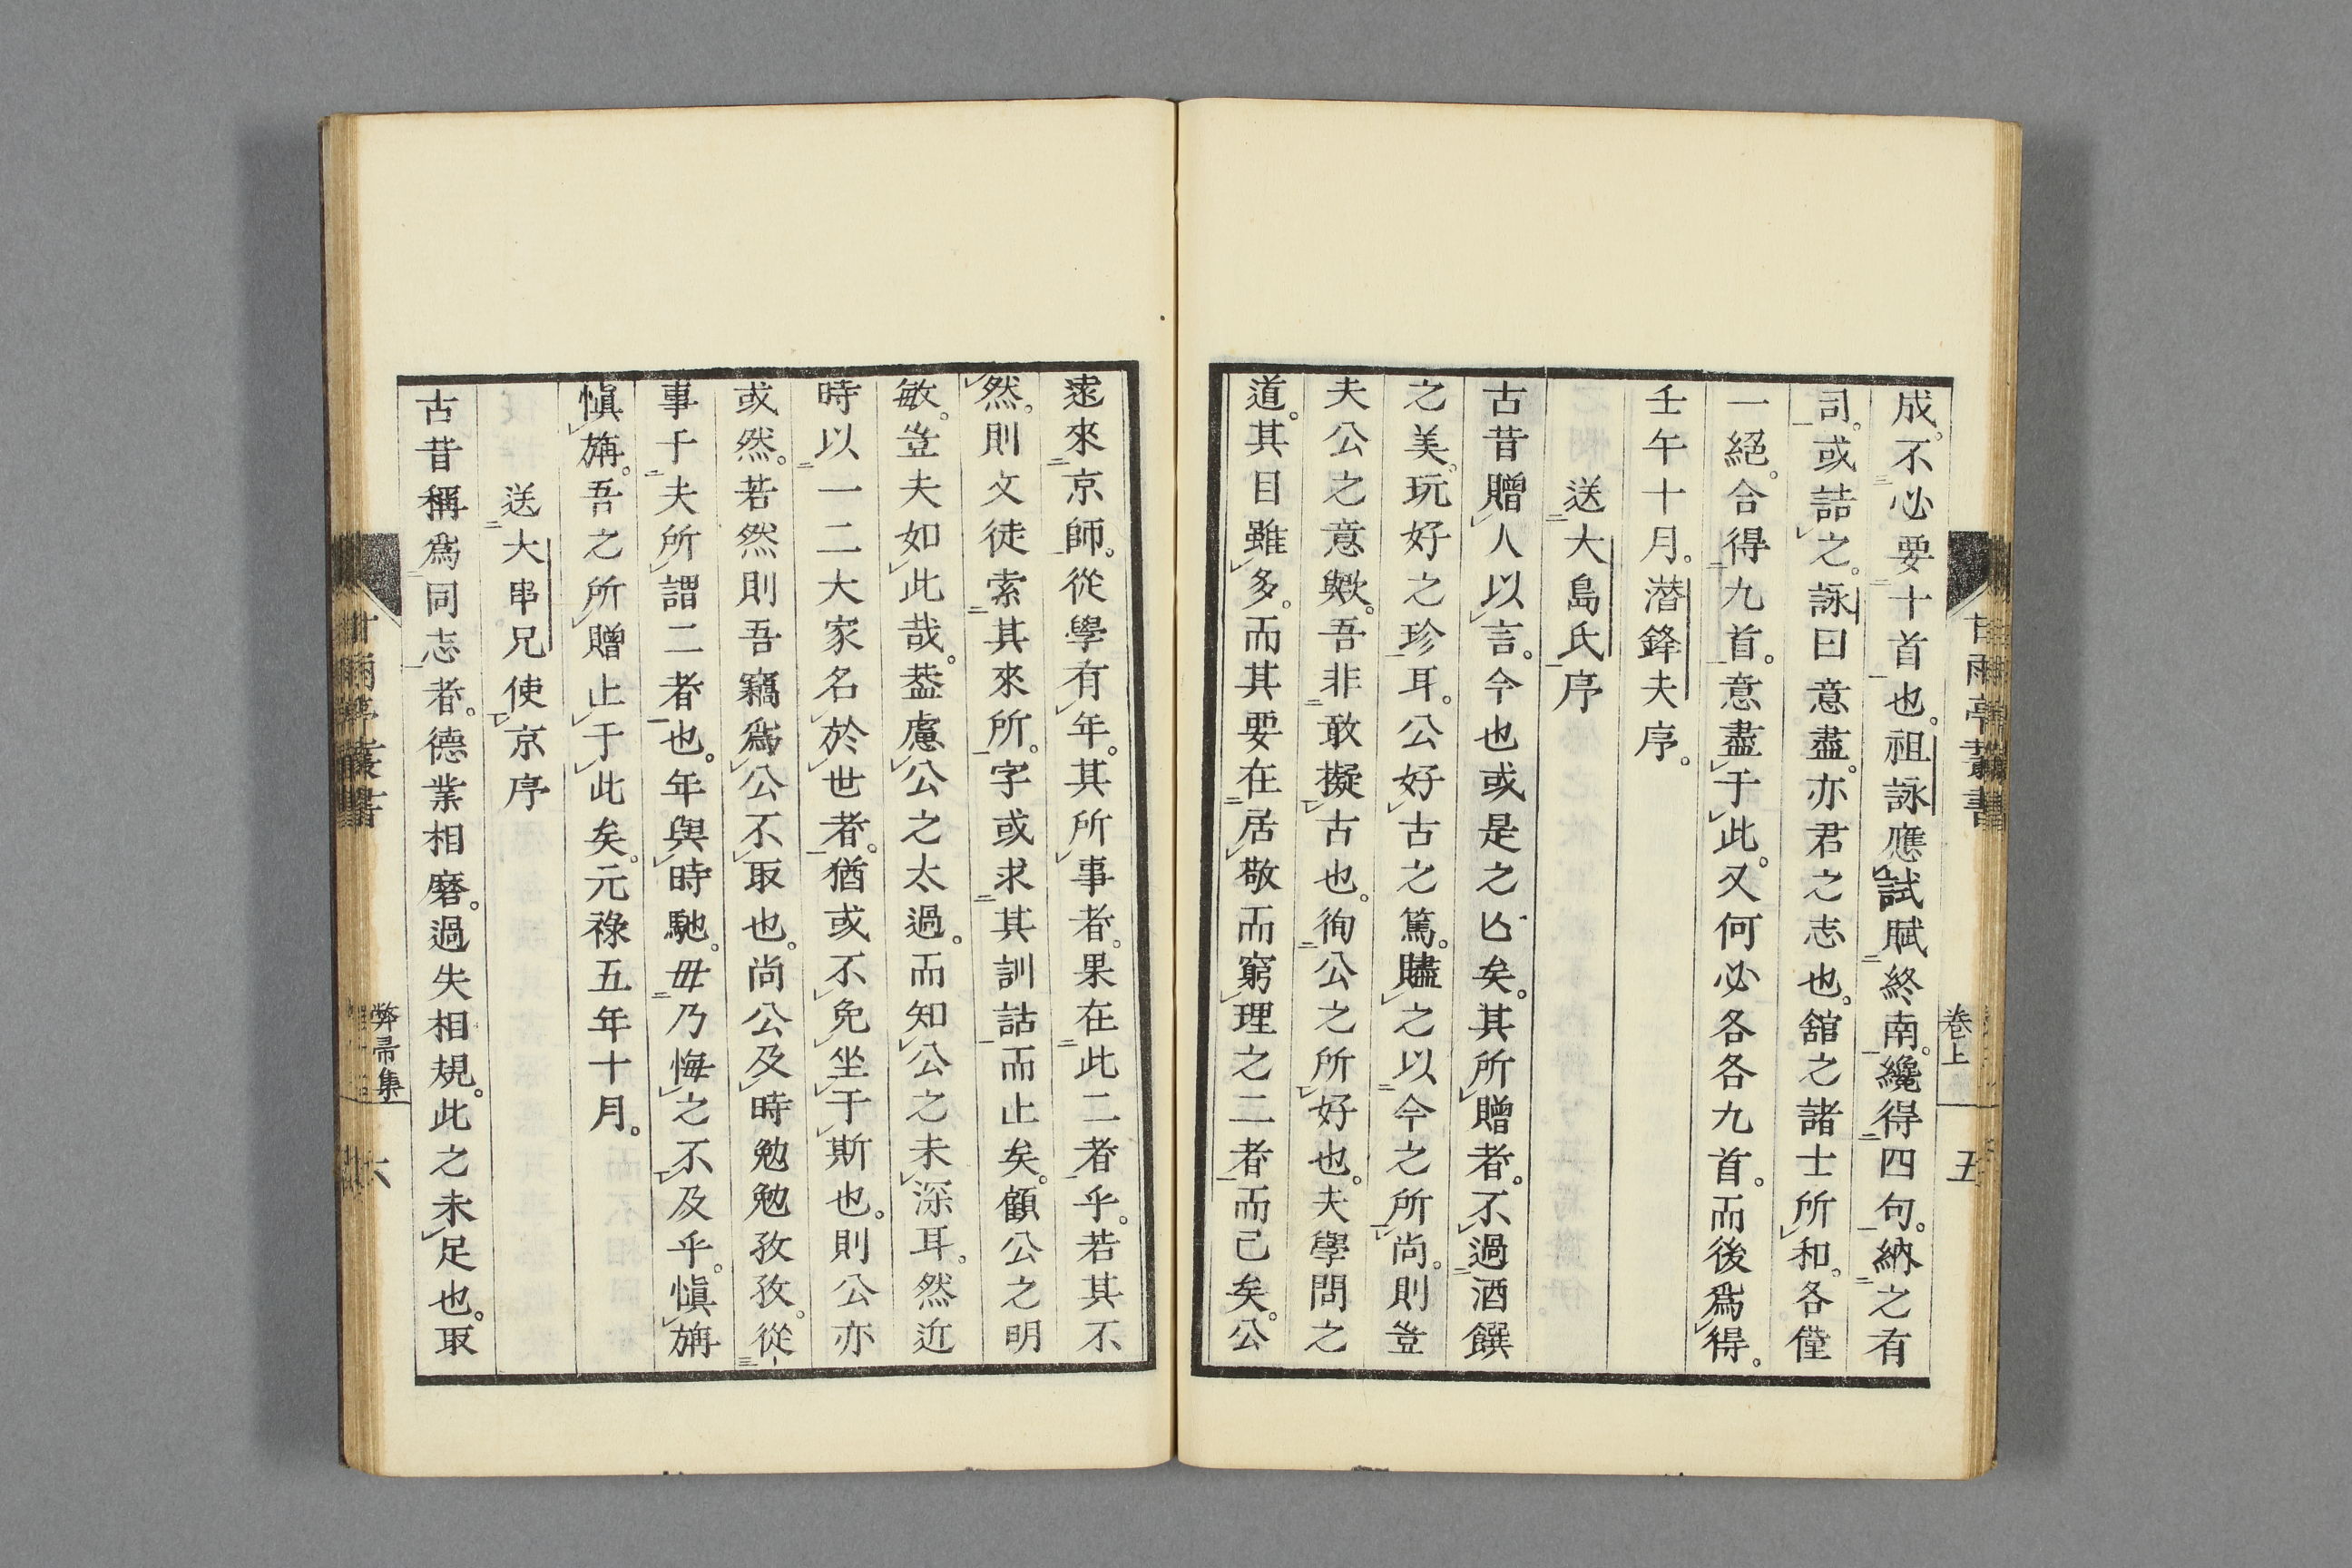 成。不必要十首也。祖詠應試賦終南。纔得四句。納之有
司。或詰之。詠曰意盡。亦君之志也。舘之諸士所和。各僅
一絕。合得九首。意盡于此。又何必各各九首。而後爲得。
壬午十月。潜鋒夫序。
送大島氏序
古昔贈人以言。今也或是之亾矣。其所贈者。不過酒饌
之美。玩好之珍耳。公好古之篤。贐之以今之所尚。則豈
夫公之意歟。吾非敢擬古也。徇公之所好也。夫學問之
道。其目雖多。而其要在居敬而窮理之二者而已矣。公
遠來京師。從學有年。其所事者。果在此二者乎。若其不
然。則文徒索其來所。字或求其訓詁而止矣。顧公之明
敏。豈夫如此哉。葢慮公之太過。而知公之未深耳。然近
時以一二大家名於世者。猶或不免坐于斯也。則公亦
或然。若然則吾竊爲公不取也。尚公及時勉勉孜孜。從
事于夫所謂二者也。年與時馳。毋乃悔之不及乎。愼旃
愼旃。吾之所贈止于此矣。元祿五年十月。
送大串兄使京序
古昔稱爲同志者。德業相磨。過失相規。此之未足也。取
甘雨亭叢書
卷上
五
甘雨亭叢書
弊帚集
六